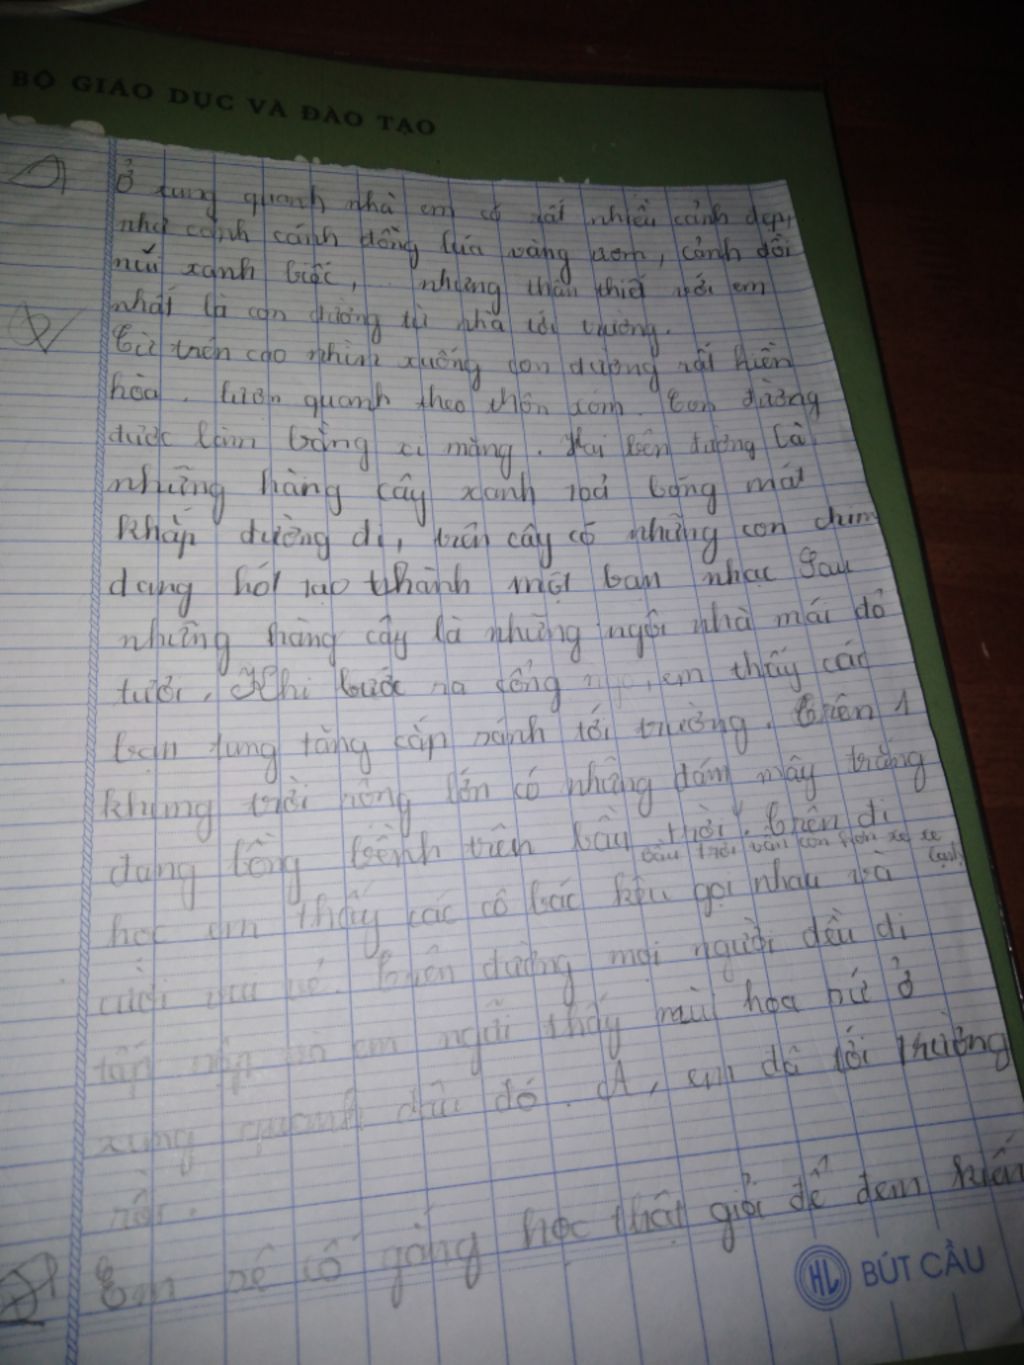 BỘ GIÁO DỤC VÀ ĐÀO TẠO
Ở xung quanh nhà em có rất nhiều cảnh đẹp,
như cánh cánh đồng lúa vàng ươm, cảnh đồi
núi xanh biếc, nhưng thân thiết với em
nhất là con đường từ nhà tới trường.
Từ trên cao nhìn xuống con đường rất hiền
hòa. lượn quanh theo thôn xóm. Con đường
được làm bằng xi măng. Hai bên đường là
những hàng cây xanh toả bóng mát
khắp đường đi, trên cây có những con chim
đang hót tạo thành một ban nhạc Sau
những hàng cây là những ngôi nhà mái đỏ
tươi. Khi bước ra cổng, em thấy các
bạn tung tăng cắp sánh tới trường. Trên 1
khung trời rộng lớn có những đám mây trắng
đang bồng bềnh trên bầu trời. Trên đi
bầu trời vẫn còn hơn xe xe lạnh
học em thấy các cô bác kêu gọi nhau và
cười vui vẻ. Trên đường mọi người đều đi
tấp nập và em ngửi thấy mùi hoa bứ ở
xung quanh đâu đó. A, em đã tới trường
rồi.
Em sẽ cố gắng học thật giỏi để đem kiến
HL BÚT CẦU